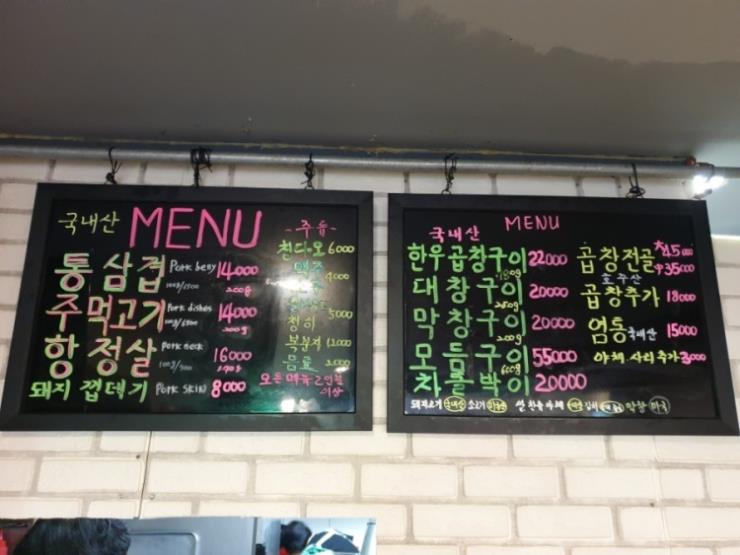 국내산 MENU
통삼겹 Pork bery 14000
200g
주먹고기 Pork dishes 14000
200g
항정살 Pork neck 16000
돼지 껍데기 Pork SKIN 8000
6000
맥주 4000
5000
청하
복분자 12000
음료 2000
모든 메뉴 2인분
이상
MENU
국내산
한우곱창구이 22000
180g
대창구이 20000
250g
막창구이 20000
200g
모듬구이 55000
600g
차돌박이 20000
곱창전골 大45000
中35000
호주산
곱창추가 18000
염통 국내산 15000
야채 사리추가 3000
돼지고기 국내산 소고기